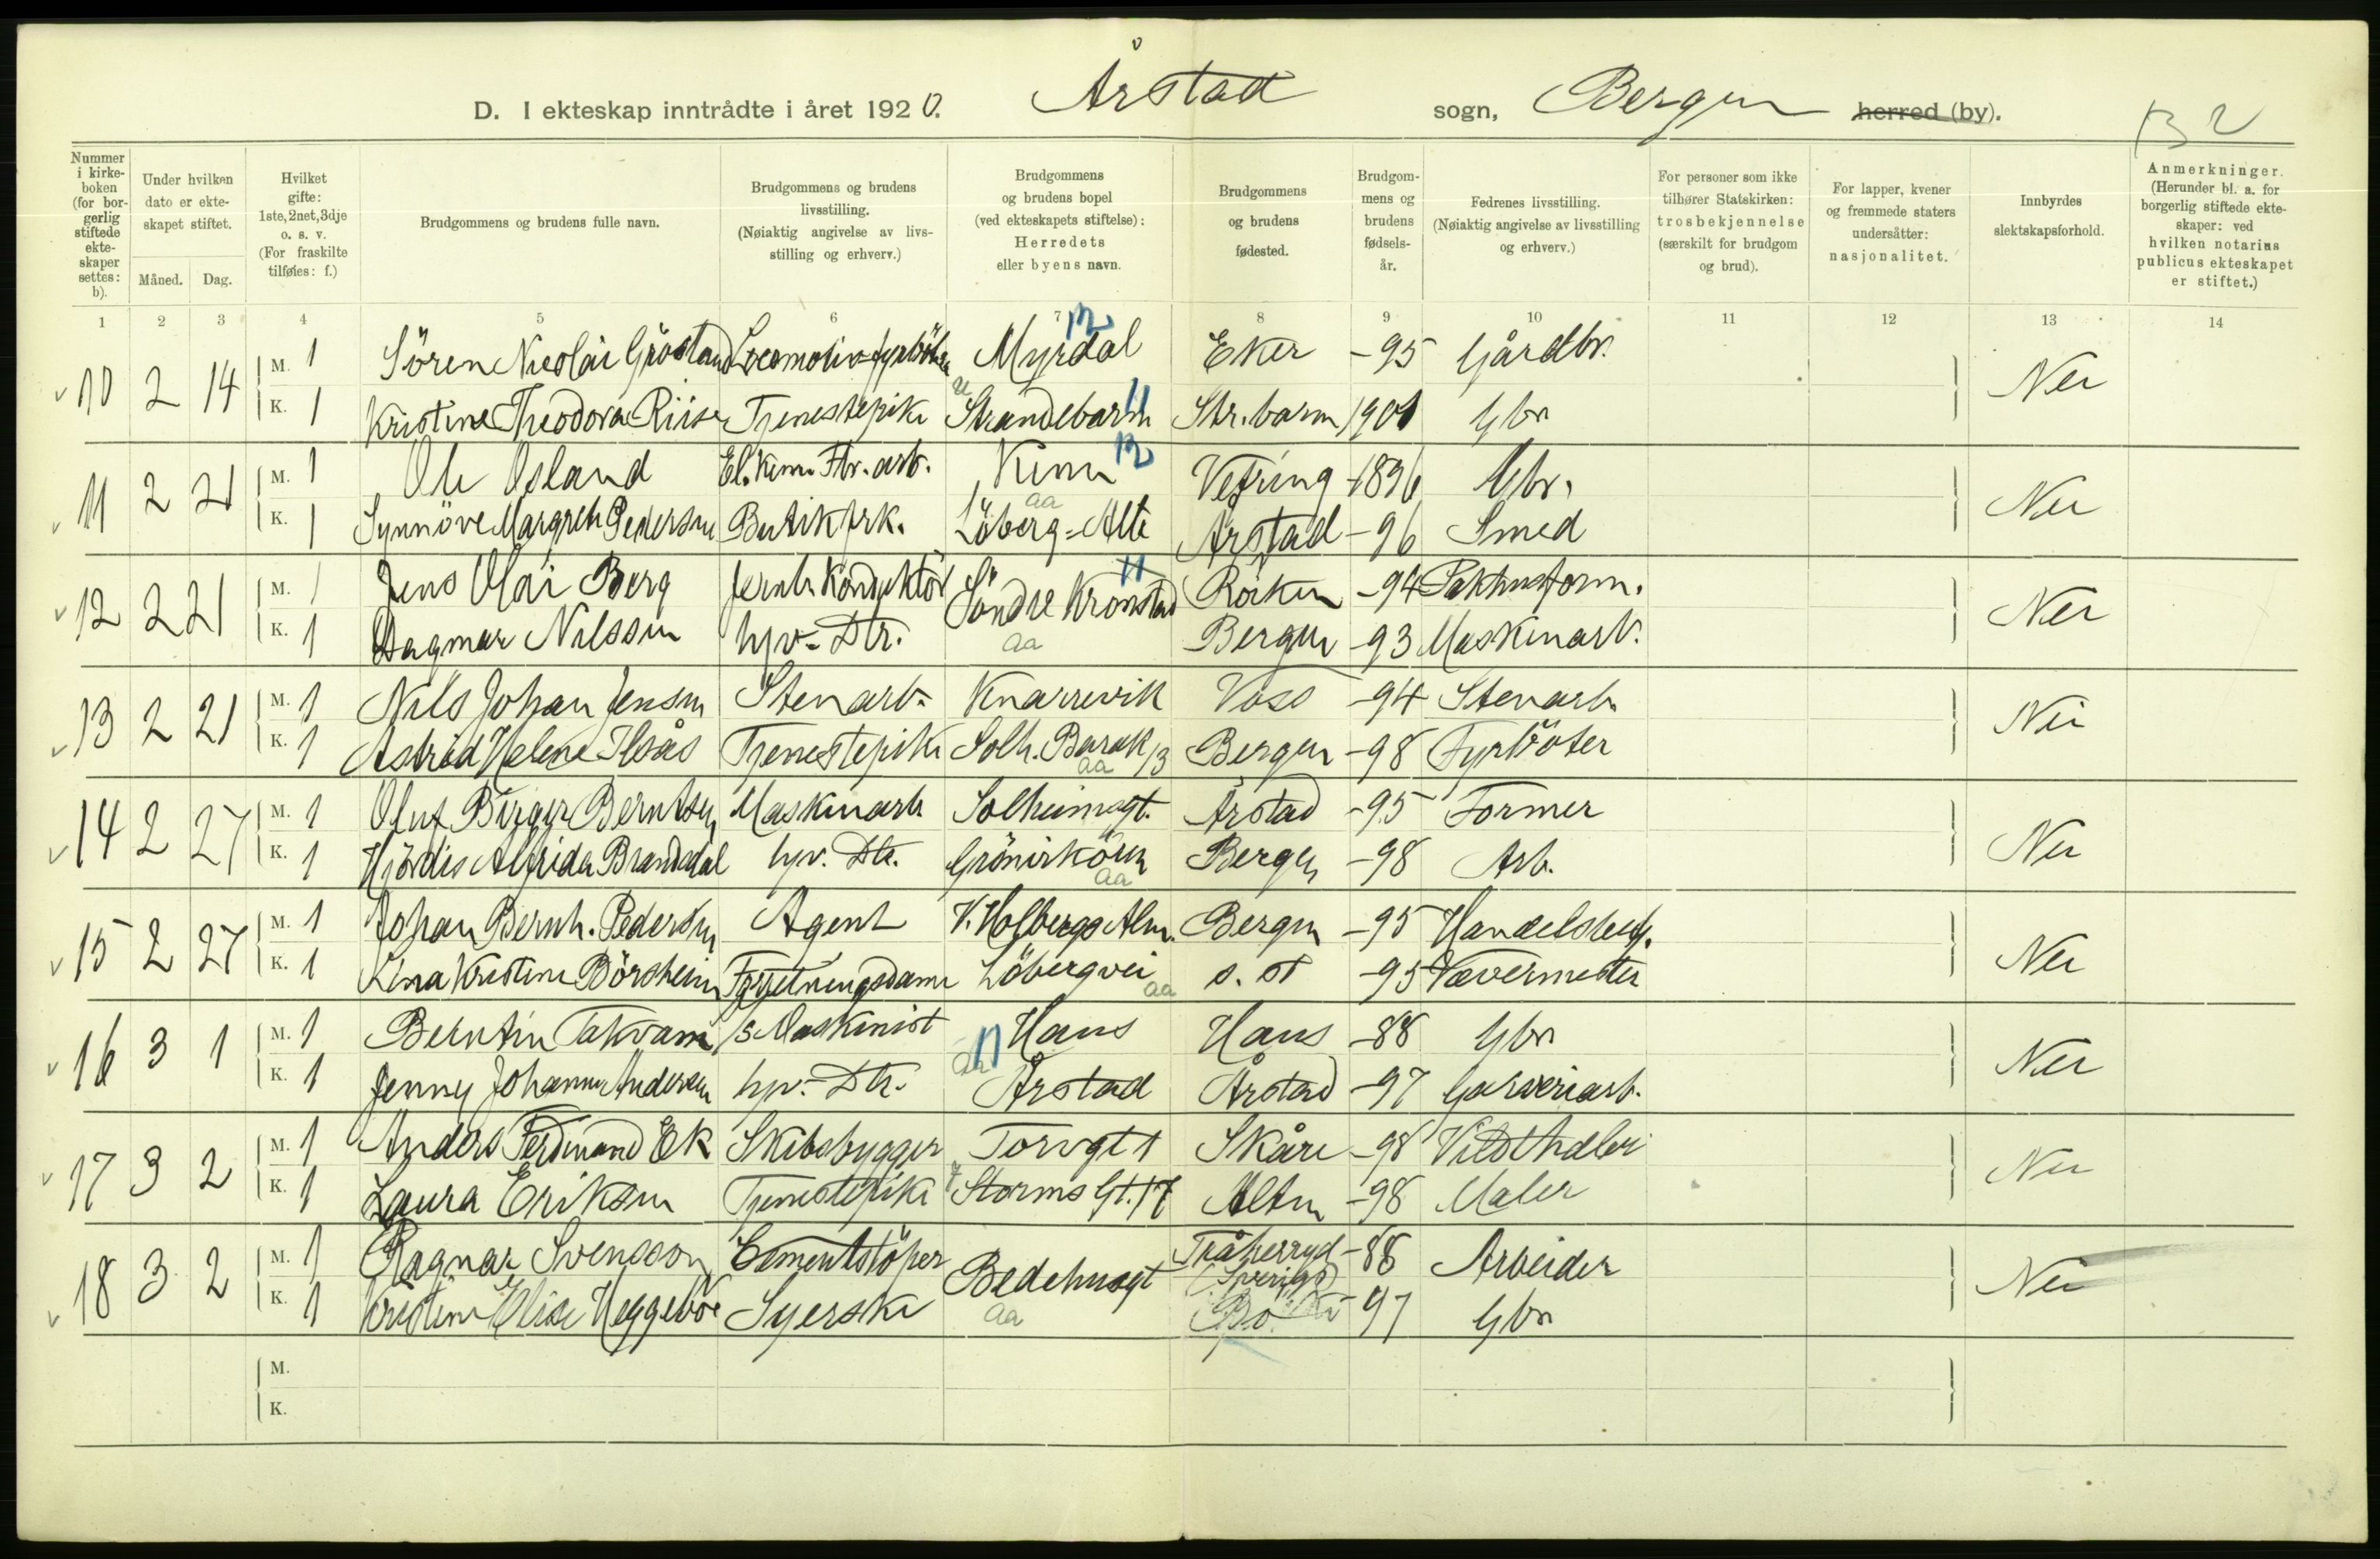 D. I ekteskap inntrådte i året 1920. Årstad sogn, Bergen herred (by). B 2
Nummer i kirkeboken (for borgerlig stiftede ekteskaper settes: b).
Under hvilken dato er ekteskapet stiftet.
Måned. Dag.
Hvilket gifte: 1ste, 2net, 3dje o. s. v. (For fraskilte tilføies: f.)
Brudgommens og brudens fulle navn.
Brudgommens og brudens livsstilling. (Nøiaktig angivelse av livsstilling og erhverv.)
Brudgommens og brudens bopel (ved ekteskapets stiftelse): Herredets eller byens navn.
Brudgommens og brudens fødested.
Brudgommens og brudens fødselsår.
Fedrenes livsstilling. (Nøiaktig angivelse av livsstilling og erhverv.)
For personer som ikke tilhører Statskirken: trosbekjennelse (særskilt for brudgom og brud).
For lapper, kvener og fremmede staters undersåtter: nasjonalitet.
Innbyrdes slektskapsforhold.
Anmerkninger. (Herunder bl. a. for borgerlig stiftede ekteskaper: ved hvilken notarius publicus ekteskapet er stiftet.)
1 2 3 4 5 6 7 8 9 10 11 12 13 14
10 2 14 M. 1 Sören Nicolai Gröstand Locomotivfyrböter Myrdal 12 Eker -95 Gårdbr. Nei
K. 1 Kristine Theodora Riise Tjenestepike Strandebarm 11 Str.barm 1901 Gbr
11 2 21 M. 1 Ole Osland El.kem. Fbr. arb. Kinn 12 Vefring -1896 Gbr. Nei
K. 1 Synnöve Margrete Pedersen Butikfrk. Löberg-Alle aa Årstad -96 Smed
12 2 21 M. 1 Jens Olai Berg Jernb. Konduktör Söndre Kronstad 11 Röken -94 Pakhusform. Nei
K. 1 Dagmar Nilssen hjv-Dtr. aa Bergen -93 Maskinarb.
13 2 21 M. 1 Nils Johan Jensen Stenarb. Knarrevik Voss -94 Stenarb. Nei
K. 1 Astrid Helene Ilsås Tjenestepike Solh. Barak 13 aa Bergen -98 Fyrböter
14 2 27 M. 1 Oluf Birger Berntsen Maskinarb. Solheimsgt. Årstad -95 Former Nei
K. 1 Hjördis Alfrida Brandsdal hjv. Dtr. aa Bergen -98 Arb.
15 2 27 M. 1 Johan Bernh. Pedersen Agent V. Holbergs Alm. Bergen -95 Handelsbetj. Nei
K. 1 Lina Kristine Börsheim Forretningsdame Löbergvei aa s. st -95 Vævermester
16 3 1 M. 1 Berntin Takvam Maskinist Haus 11 Haus -88 Gbr Nei
K. 1 Jenny Johanne Andersen hjv.-Dtr. Årstad Årstad -97 Garveriarb.
17 3 2 M. 1 Anders Ferdinand Ek Skibsbygger Torvgt 1 Skåre -98 Vildthdler Nei
K. 1 Laura Eriksen Tjenestepike Storms Gt. 17 Alten -98 Maler
18 3 2 M. 1 Ragnar Svensson Cementstöper Bedehusgt Tråherryd (Sverige) -88 Arbeider Nei
K. 1 Kristine Elise Heggebö Syerske aa Bö -97 Gbr
M.
K.